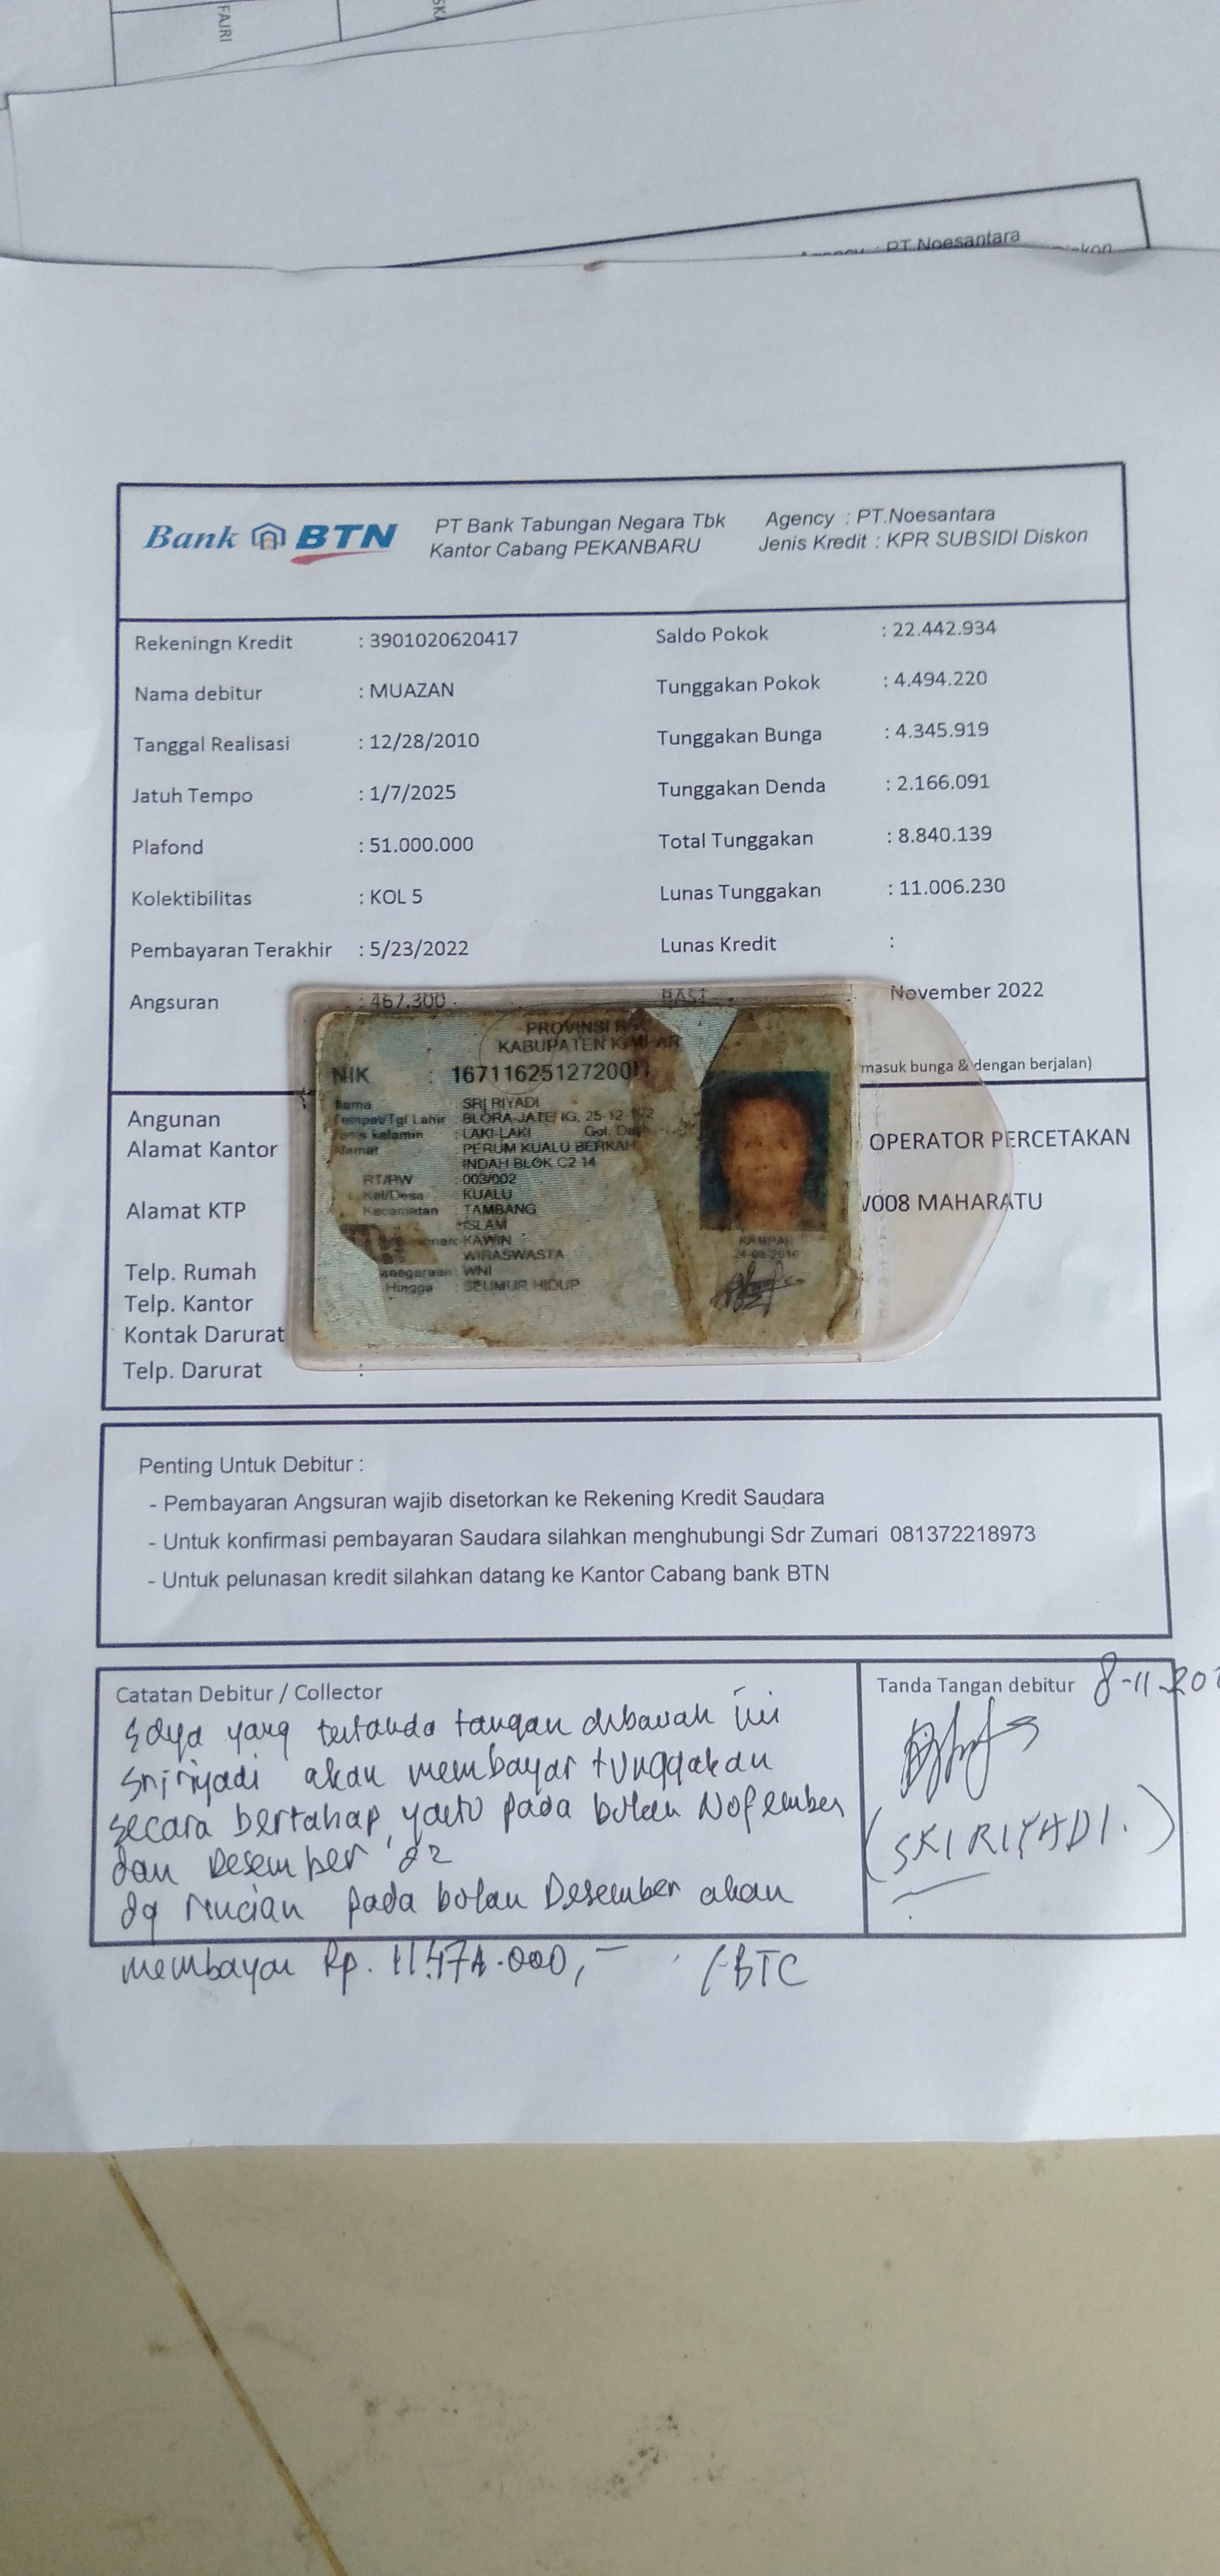 FAJRI
PT Noesantara
Bank BTN
PT Bank Tabungan Negara Tbk
Kantor Cabang PEKANBARU
Agency : PT.Noesantara
Jenis Kredit : KPR SUBSIDI Diskon
Rekeningn Kredit : 3901020620417
Saldo Pokok : 22.442.934
Nama debitur : MUAZAN
Tunggakan Pokok : 4.494.220
Tanggal Realisasi : 12/28/2010
Tunggakan Bunga : 4.345.919
Jatuh Tempo : 1/7/2025
Tunggakan Denda : 2.166.091
Plafond : 51.000.000
Total Tunggakan : 8.840.139
Kolektibilitas : KOL 5
Lunas Tunggakan : 11.006.230
Pembayaran Terakhir : 5/23/2022
Lunas Kredit :
Angsuran : 467.300
November 2022
masuk bunga & dengan berjalan)
PROVINSI
KABUPATEN
NIK : 1671162512720
Nama SRI RIYADI
Tempat/Tgl Lahir : 25-12
: LAKI-LAKI Gol.
Alamat : PERUM KUALU BERKAH
INDAH BLOK C2 14
RT/RW : 003/002
Kel/Desa : KUALU
Kecamatan : TAMBANG
ISLAM
KAWIN
WIRASWASTA
: WNI
Hingga : SEUMUR HIDUP
KAMPAR
Angunan
Alamat Kantor
OPERATOR PERCETAKAN
Alamat KTP
008 MAHARATU
Telp. Rumah
Telp. Kantor
Kontak Darurat
Telp. Darurat :
Penting Untuk Debitur :
- Pembayaran Angsuran wajib disetorkan ke Rekening Kredit Saudara
- Untuk konfirmasi pembayaran Saudara silahkan menghubungi Sdr Zumari 081372218973
- Untuk pelunasan kredit silahkan datang ke Kantor Cabang bank BTN
Catatan Debitur / Collector
Saya yang tertanda tangan dibawah ini
Sri riyadi akan membayar tunggakan
secara bertahap yaitu pada bulan Nofember
dan Desember '22
dg rincian pada bulan Desember akan
membayar Rp. 11.474.000,-
/-BTC
Tanda Tangan debitur 8-11-20
(SRI RIYADI.)